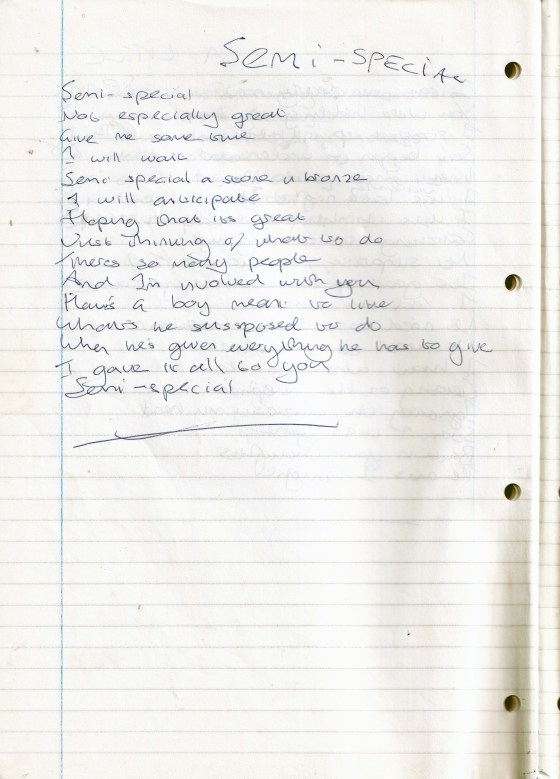 SEMI-SPECIAL
Semi-special
Not especially great
Give me some time
I will wait
Semi special a stone n bronze
I will anticipate
Hoping that its great
Just thinking of what to do
Theres so many people
And I'm involved with you
How's a boy meant to live
What's he sussposed to do
When he's given everything he has to give
I gave it all to you
Semi-special